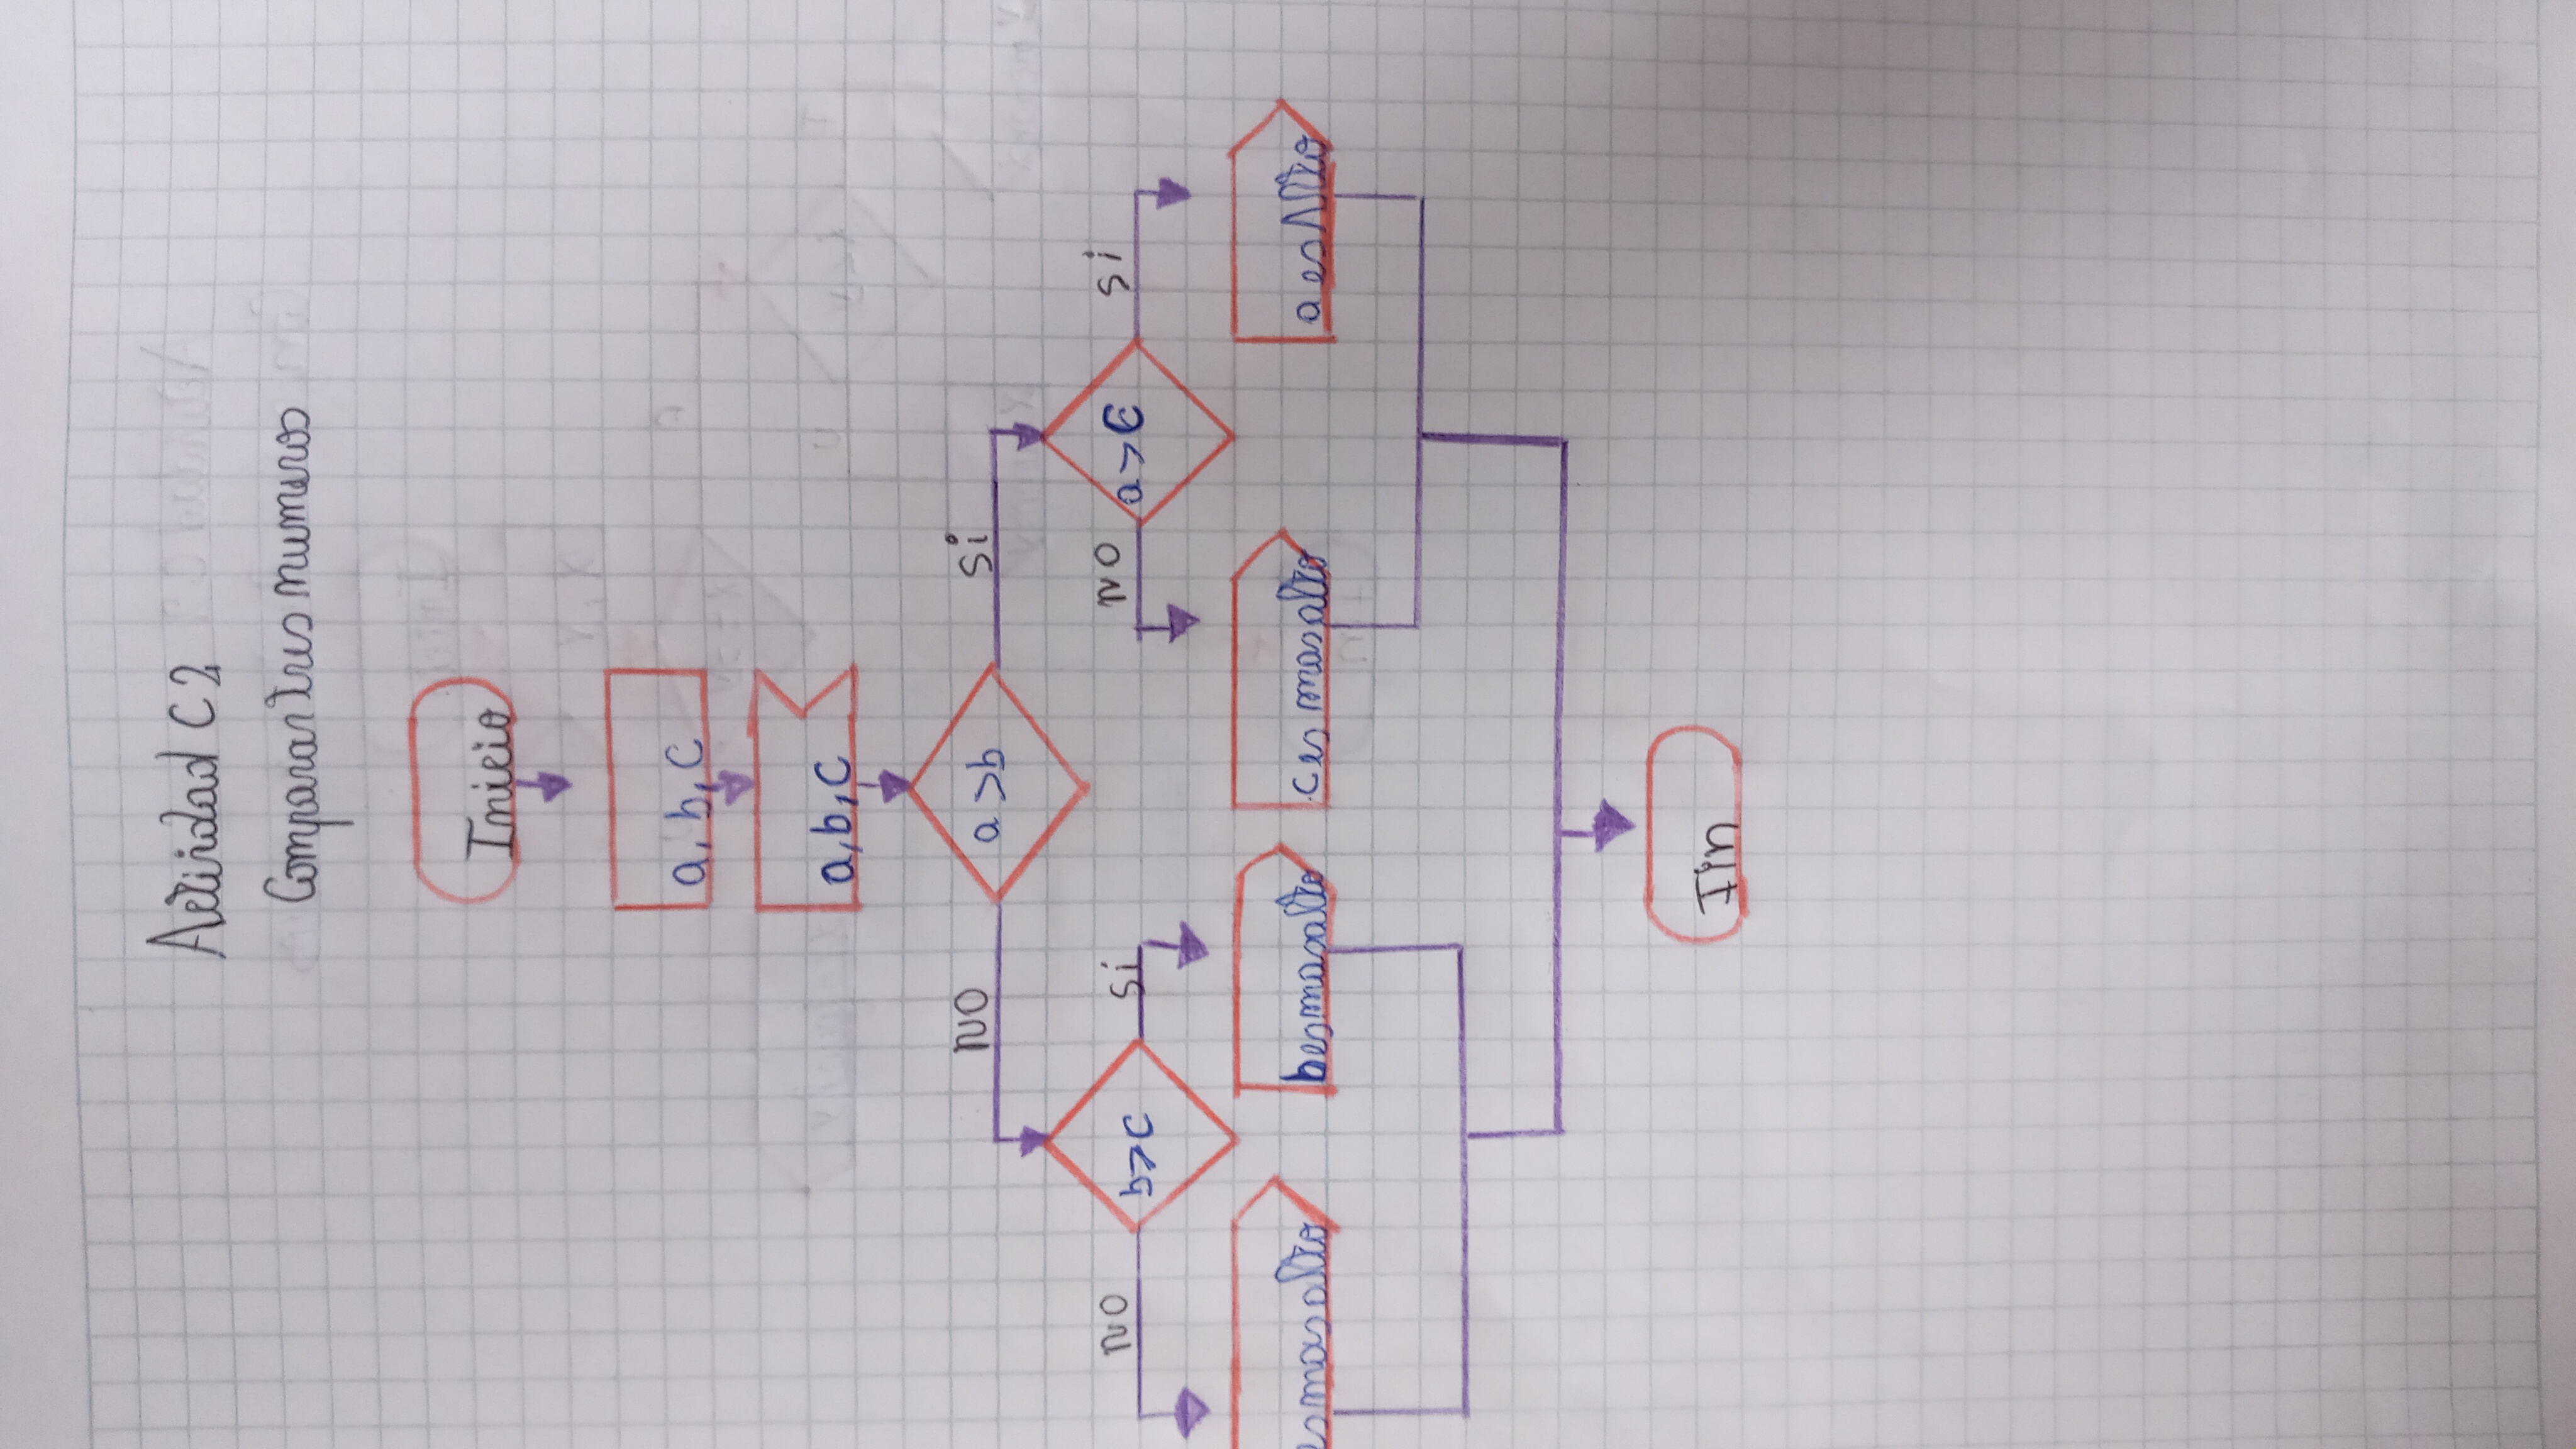 Actividad C2
Comparar tres numeros
Inicio
a, b, c
a, b, c
NO
a > b
si
NO
b > c
si
NO
a > c
si
es mas alto
b es mas alto
c es mas alto
a es Alto
Fin